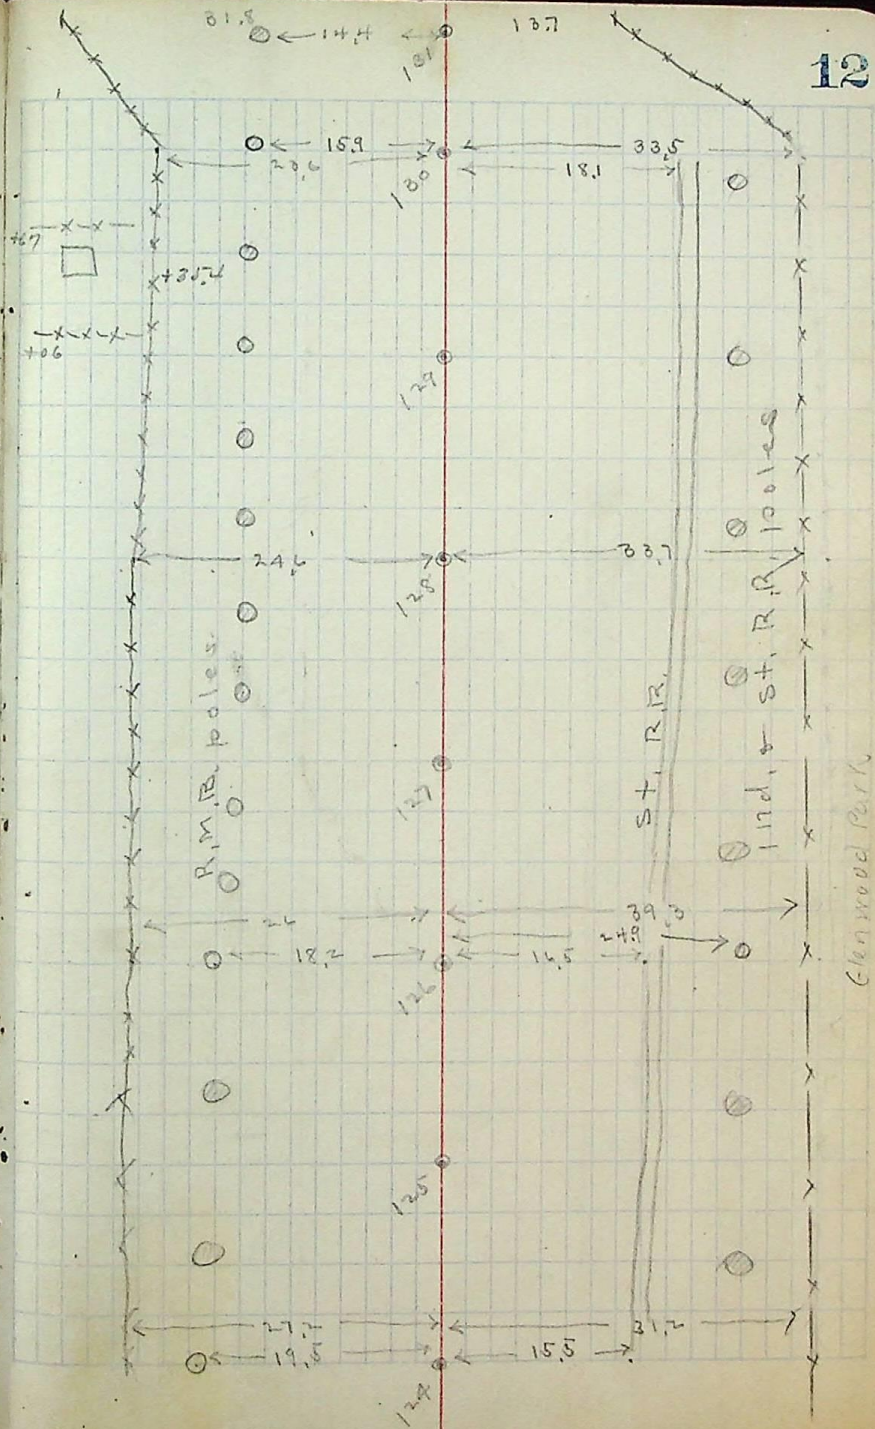 31.8 14.4 13.7
131
12
15.9 33.5
18.1
130
+67
+35.4
+06
129
24.6 33.7
128
R.M.B. poles
St. R.R.
Ind. & St. R.R. poles
Glenwood Park
127
26 39.3
24.9
18.2 16.5
126
125
27.2 31.2
19.5 15.5
124